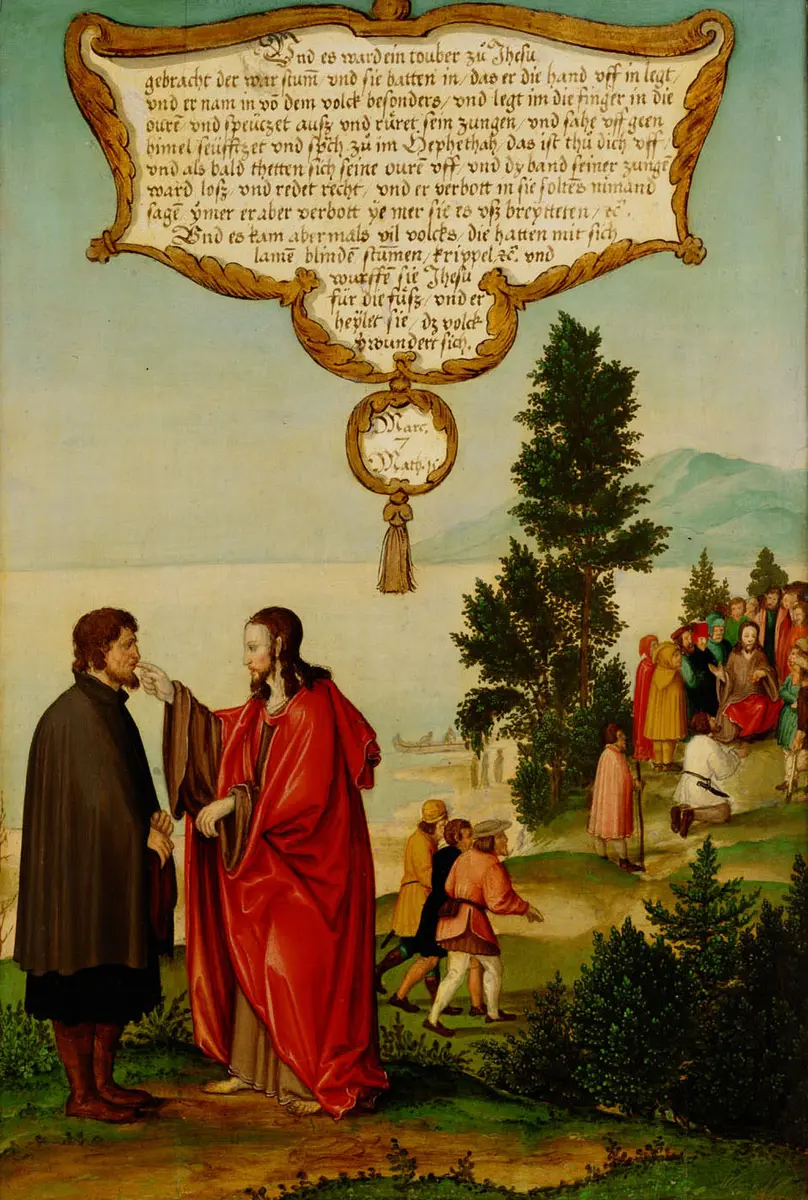 Und es ward ein touber zů Jhesu
gebracht der war stum̄ / vnd sie batten in / das er die hand vff in legt /
vnd er nam in vō dem volck besonders / vnd legt im die finger in die
ourē / vnd speüczet ausz / vnd rüret sein zungen / vnd sahe vff geen
himel / seüfftzet vnd sp̄ch zů im Hephethah / das ist thů dich vff /
vnd als bald thetten sich seine ourē vff / vnd dz band seiner zungē
ward losz / vnd redet recht / vnd er verbott in sie soltēs nimand
sagē / ÿmer er aber verbott ÿe mer sie es vsz breytteten / ⁊c̄.
Vnd es kam abermals vil volcks / die hatten mit sich
lamē blinden stum̄en / krippel / ⁊c̄. vnd
wurffē sie Jhesu
für die füsz / vnd er
heÿlet sie / dz volck
v̄wundert sich.
Marc.
7
Math. 15